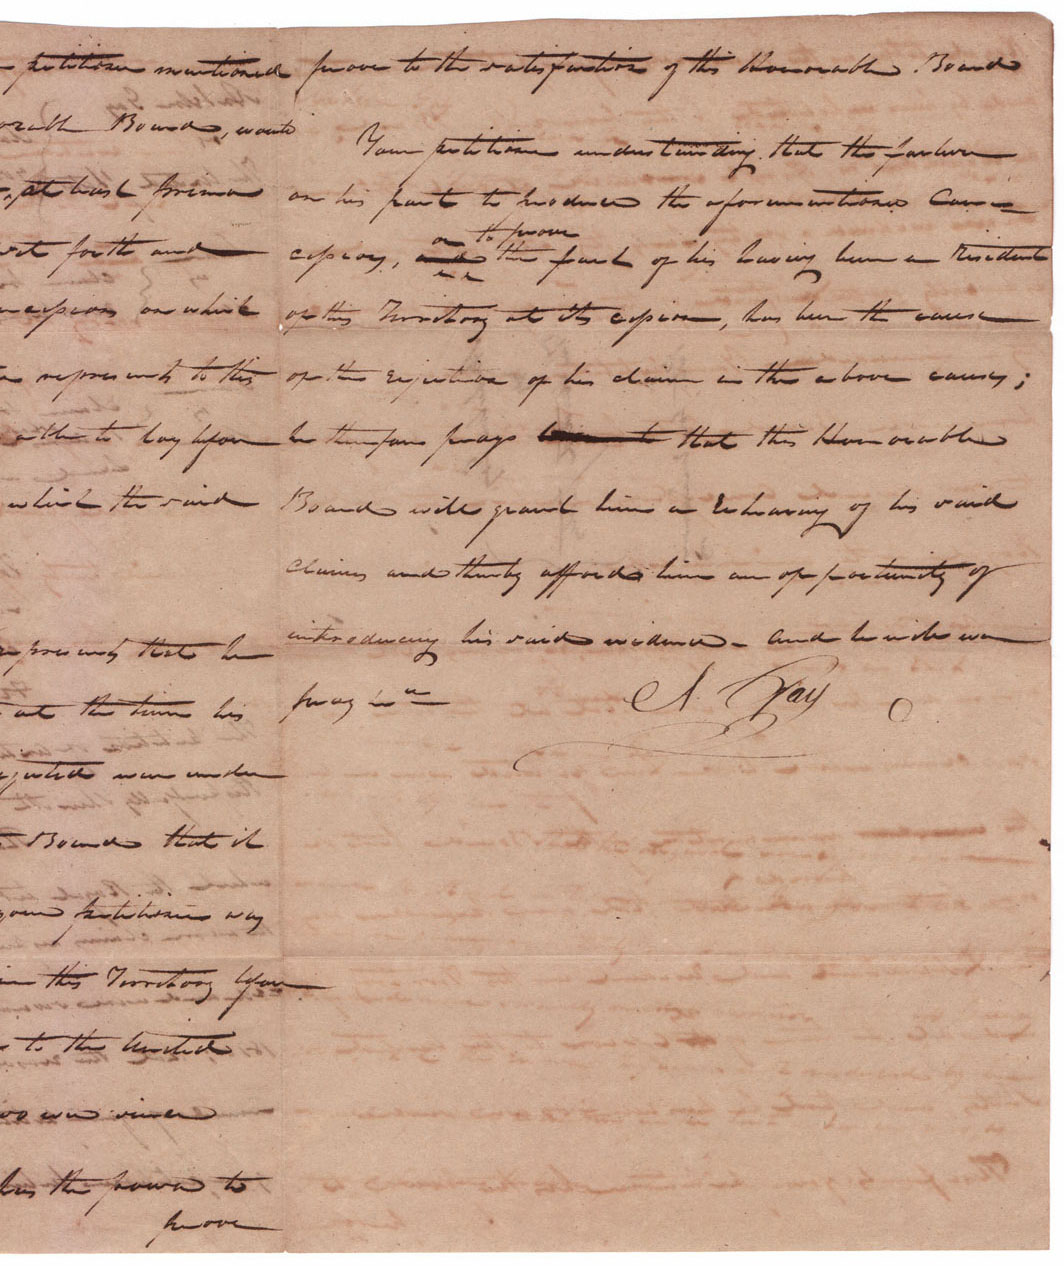 petitioner mentioned
Board, would
at least prima
set forth and
on which
represents to this
able to lay upon
which the said
represents that he
at the time his
rejected was under
Board that it
your petitioner was
in this Territory upon
to the United
has the power to
prove
prove to the satisfaction of this Honorable Board
Your petitioner understanding that the failure
on his part to produce the aforementioned Con=
cessions, or to prove the fact of his having been a resident
of this Territory at its cession, has been the cause
of the rejection of his claim in the above causes;
he therefore prays that this Honorable
Board will grant him a Rehearing of his said
claims and thereby afford him an opportunity of
introducing his said evidence - and he will ever
pray &c